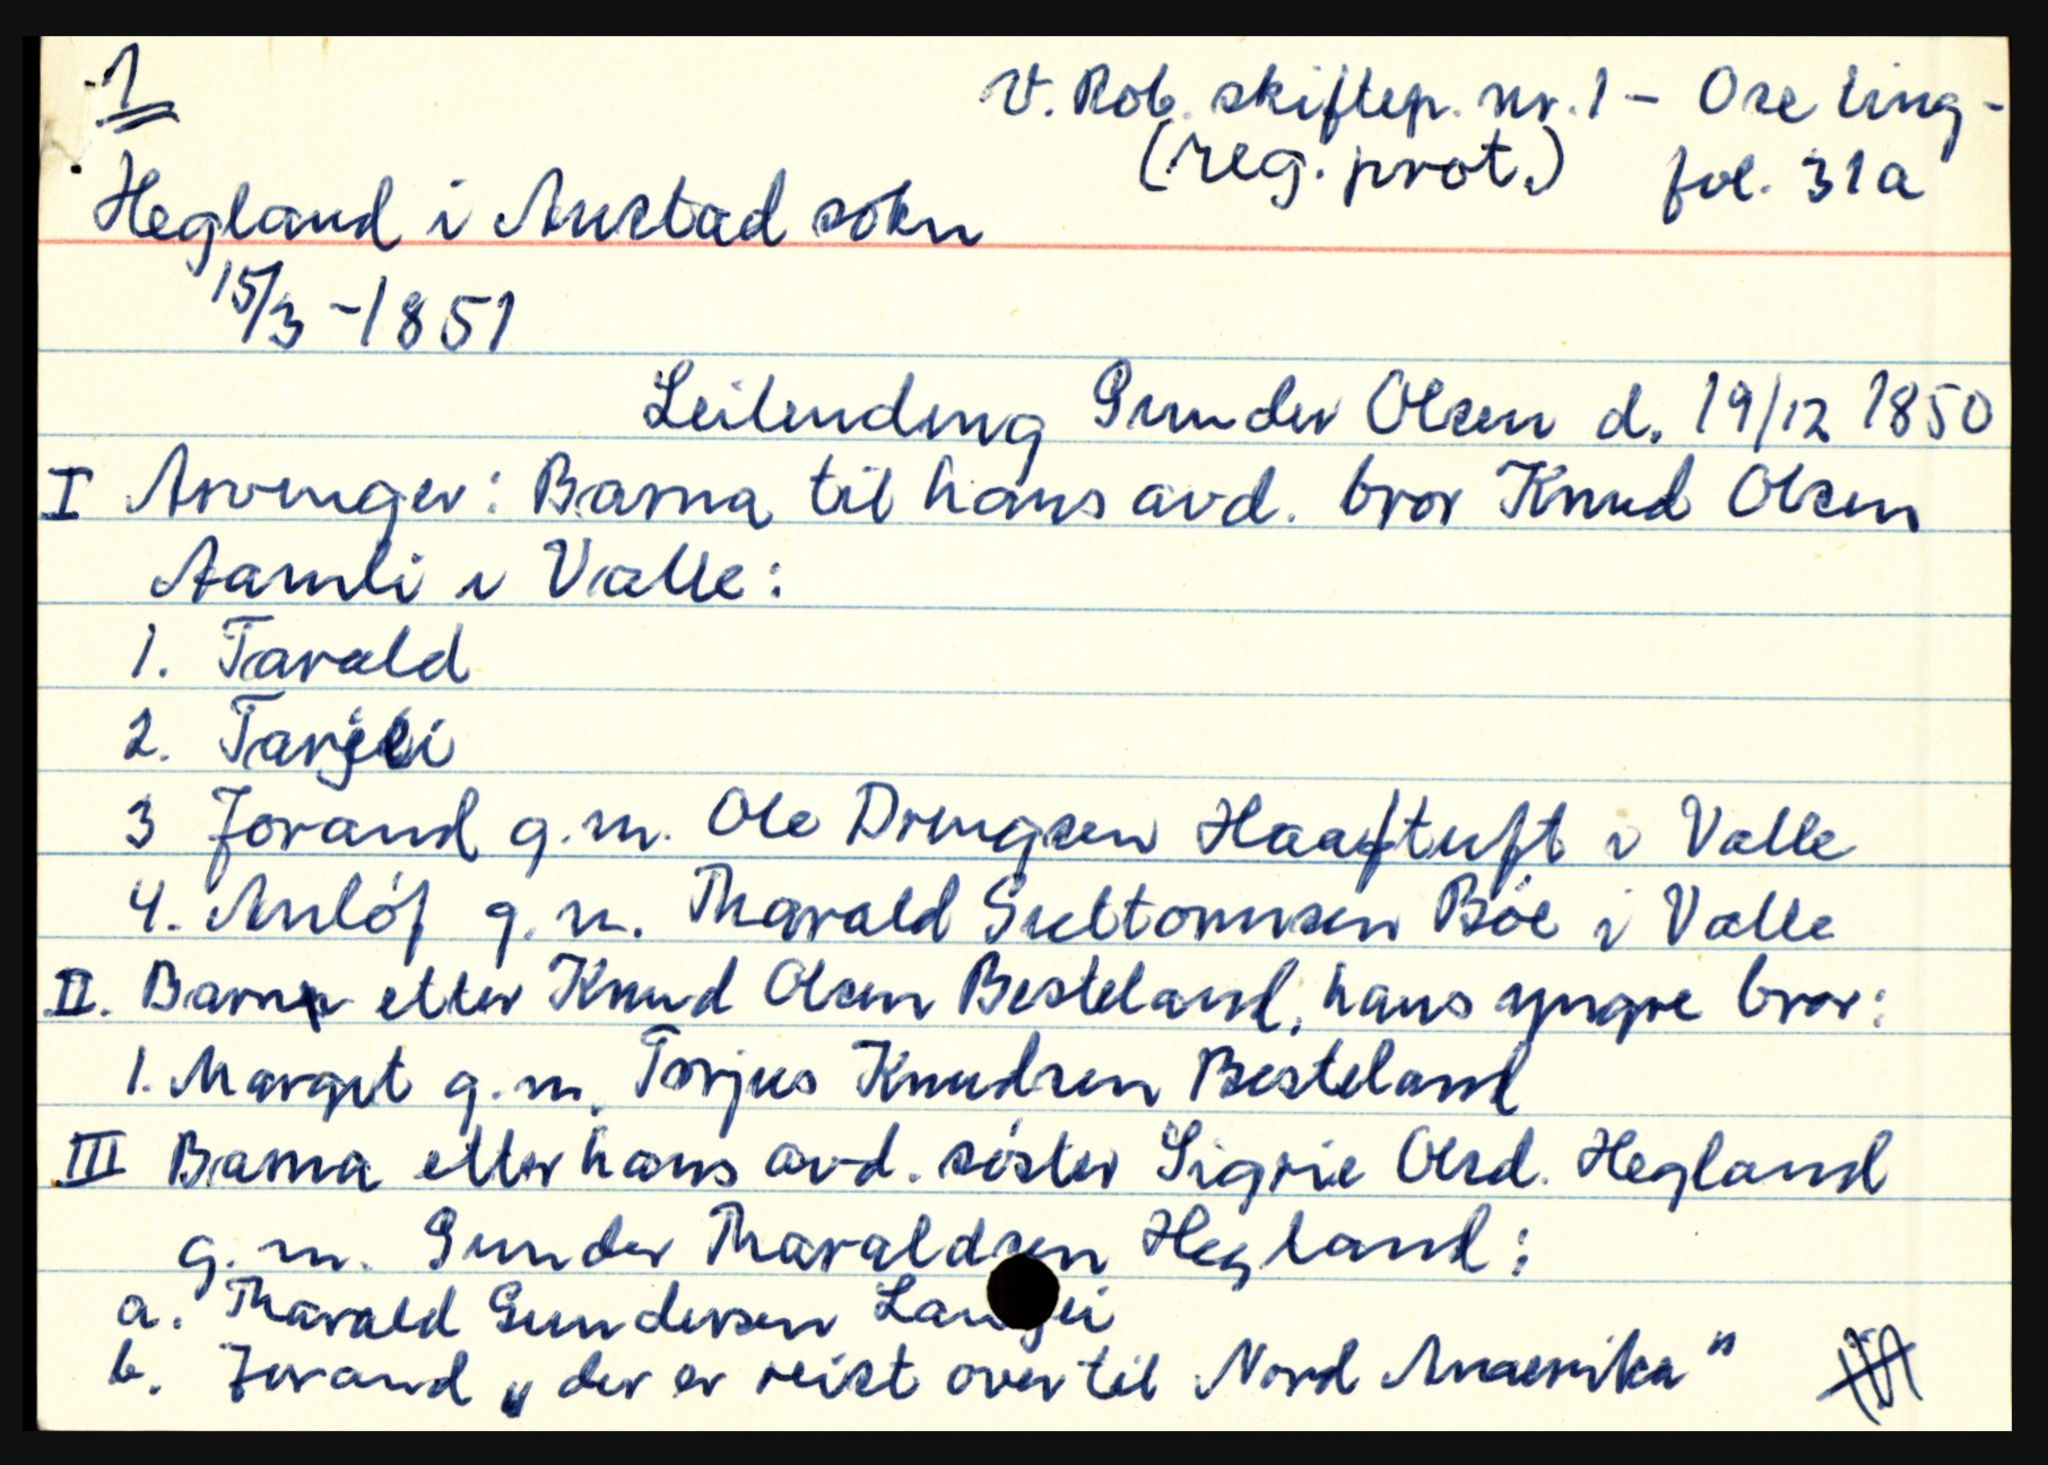 1
V. Rob. skiftep. nr. 1 - Ose ting-
(reg. prot.) fol. 31a
Hegland i Austad sokn
15/3 - 1851
Leilending Gunder Olsen d. 19/12 1850
I Arvinger: Barna til hans avd. bror Knud Olsen
Aamli i Valle:
1. Tarald
2. Tarjei
3 Jorand g.m. Ole Drengsen Haaftuft i Valle
4. Anlóf g.m. Tharald Guttormsen Bóe i Valle
II. Barn etter Knud Olsen Besteland, hans yngre bror:
1. Margit g.m. Torjus Knudsen Besteland
III Barna etter hans avd. sóster Sigrie Olsd. Hegland
g.m. Gunder Tharaldsen Hegland:
a. Tharald Gundersen
b. Jorand „der er reist over til Nord Amerika"